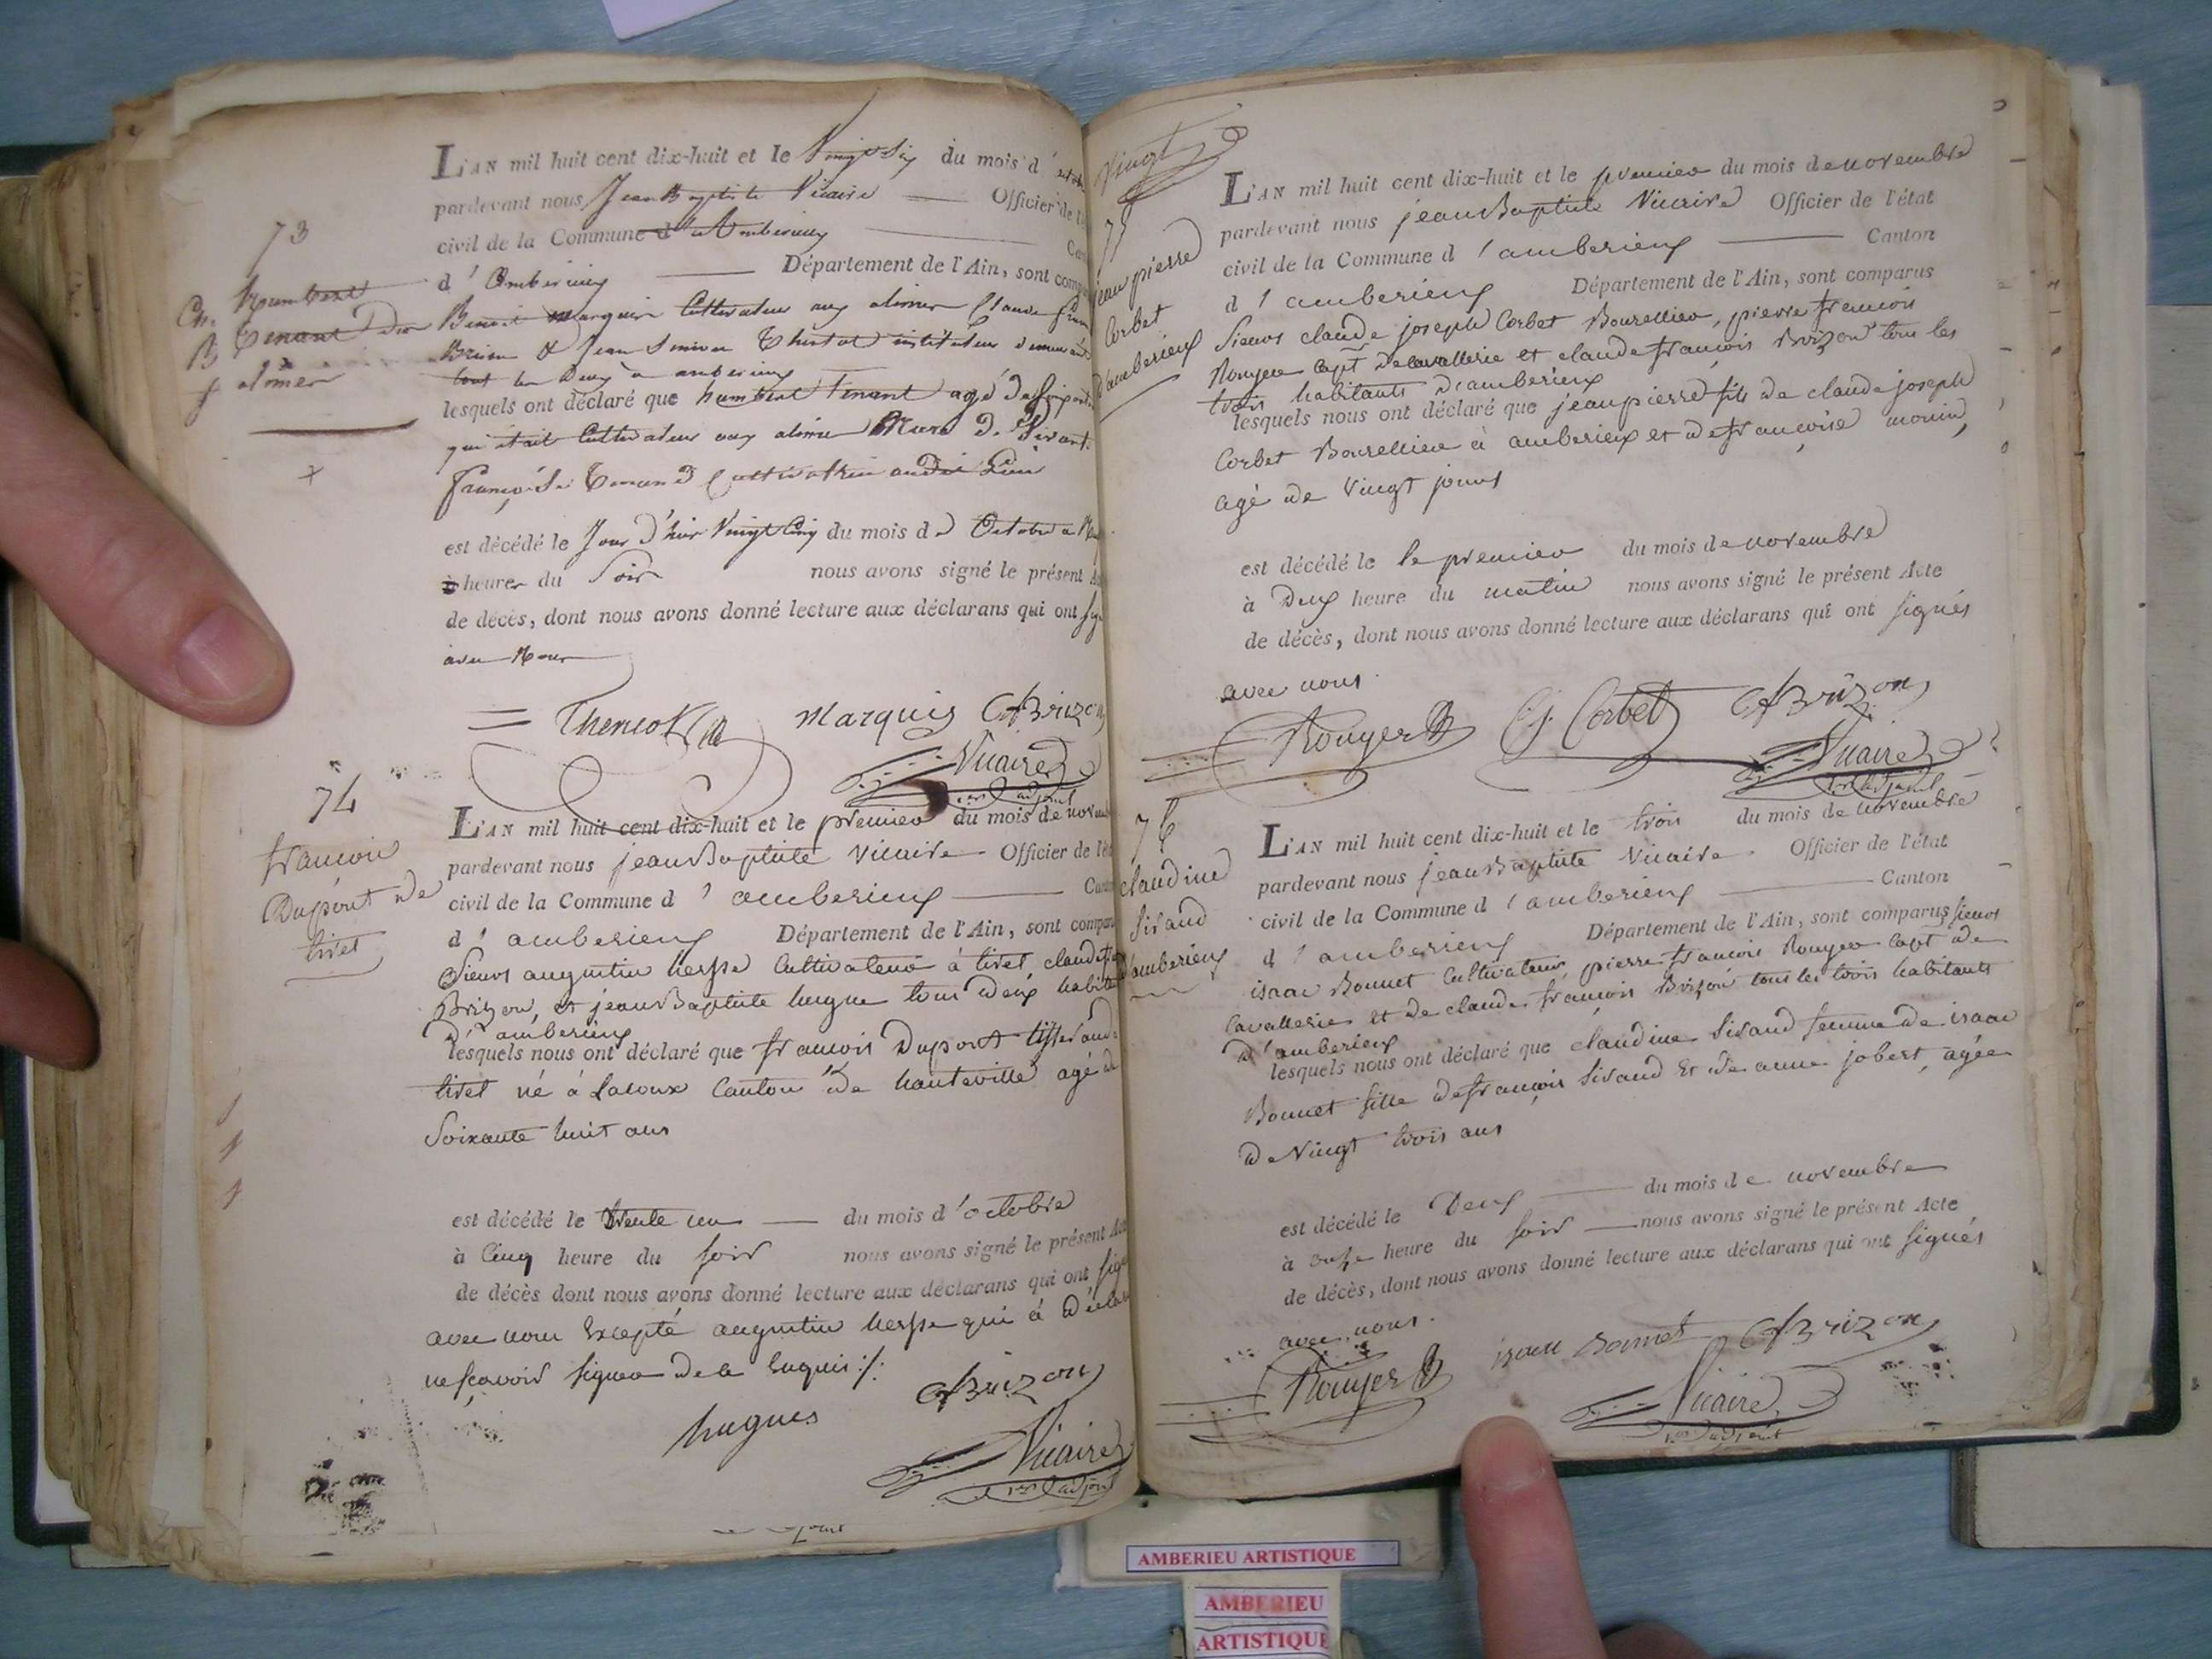 73
humbert
Tenant Du
L'AN mil huit cent dix-huit et le Vingt Six du mois d'
pardevant nous Jean Baptiste Vicaire Officier de
civil de la Commune d'Amberieux
d'Amberieux Département de l'Ain, sont
Benoit Marquis Cultivateur aux alimes Claude
tous les Deux à amberieux
lesquels ont déclaré que humbert Tenant agé de
qui était Cultivateur aux alimes
françoise Tenand Cultivatrice audit Lieu
est décédé le Jour d'hier Vingt Cinq du mois d Octobre a
heures du Soir nous avons signé le présent
de décès, dont nous avons donné lecture aux déclarans qui ont
avec Nous
Marquis CfBrizon
Vicaire
1er adjoint
74
francois
Dupont de
tiret
L'AN mil huit cent dix-huit et le premier du mois de
pardevant nous jean Baptiste Vicaire Officier de
civil de la Commune d'amberieux
d'amberieux Département de l'Ain, sont
Sieurs augustin herpse Cultivateur à tiret, claude
Brizon, et jean Baptiste hugue tous deux
d'amberieux
lesquels nous ont déclaré que francois Dupont tisserand
tiret né à Lacoux Canton de hauteville agé de
Soixante huit ans
est décédé le trente un du mois d'octobre
à Cinq heure du soir nous avons signé le présent
de décès dont nous avons donné lecture aux déclarans qui ont
avec nous Excepté augustin herpse qui à
ne sçavoir signer de ce Enquis ./.
hugues CfBrizon
Vicaire
1er adjoint
Vingt
75
jean pierre
Corbet
d'amberieux
L'AN mil huit cent dix-huit et le premier du mois de novembre
pardevant nous jean Baptiste Vicaire Officier de l'état
civil de la Commune d'amberieux Canton
d'amberieux Département de l'Ain, sont comparus
Sieurs claude joseph Corbet Bourellier, pierre francois
Rouyer Capt de cavallerie et claude francois Brizon tous les
trois habitants d'amberieux
lesquels nous ont déclaré que jean pierre fils de claude joseph
Corbet Bourellier à amberieux et de francoise monin,
agé de Vingt jours
est décédé le le premier du mois de novembre
à Deux heure du matin nous avons signé le présent Acte
de décès, dont nous avons donné lecture aux déclarans qui ont signés
avec nous.
Rouyer Cj. Corbet CfBrizon
Vicaire
1er adjoint
76
claudine
sirand
d'amberieux
L'AN mil huit cent dix-huit et le trois du mois de novembre
pardevant nous jean Baptiste Vicaire Officier de l'état
civil de la Commune d'amberieux Canton
d'amberieux Département de l'Ain, sont comparus sieurs
isaac Bonnet Cultivateur, pierre francois Rouyer Capt de
Cavallerie et de claude francois Brizon tous les trois habitants
d'amberieux
lesquels nous ont déclaré que claudine sirand femme de isaac
Bonnet fille de françois sirand et de anne jobert, agée
de Vingt trois ans
est décédé le Deux du mois de novembre
à onze heure du soir nous avons signé le présent Acte
de décès, dont nous avons donné lecture aux déclarans qui ont signés
avec nous.
Rouyer isaac bonnet CfBrizon
Vicaire
1er adjoint
AMBERIEU ARTISTIQUE
AMBERIEU
ARTISTIQUE